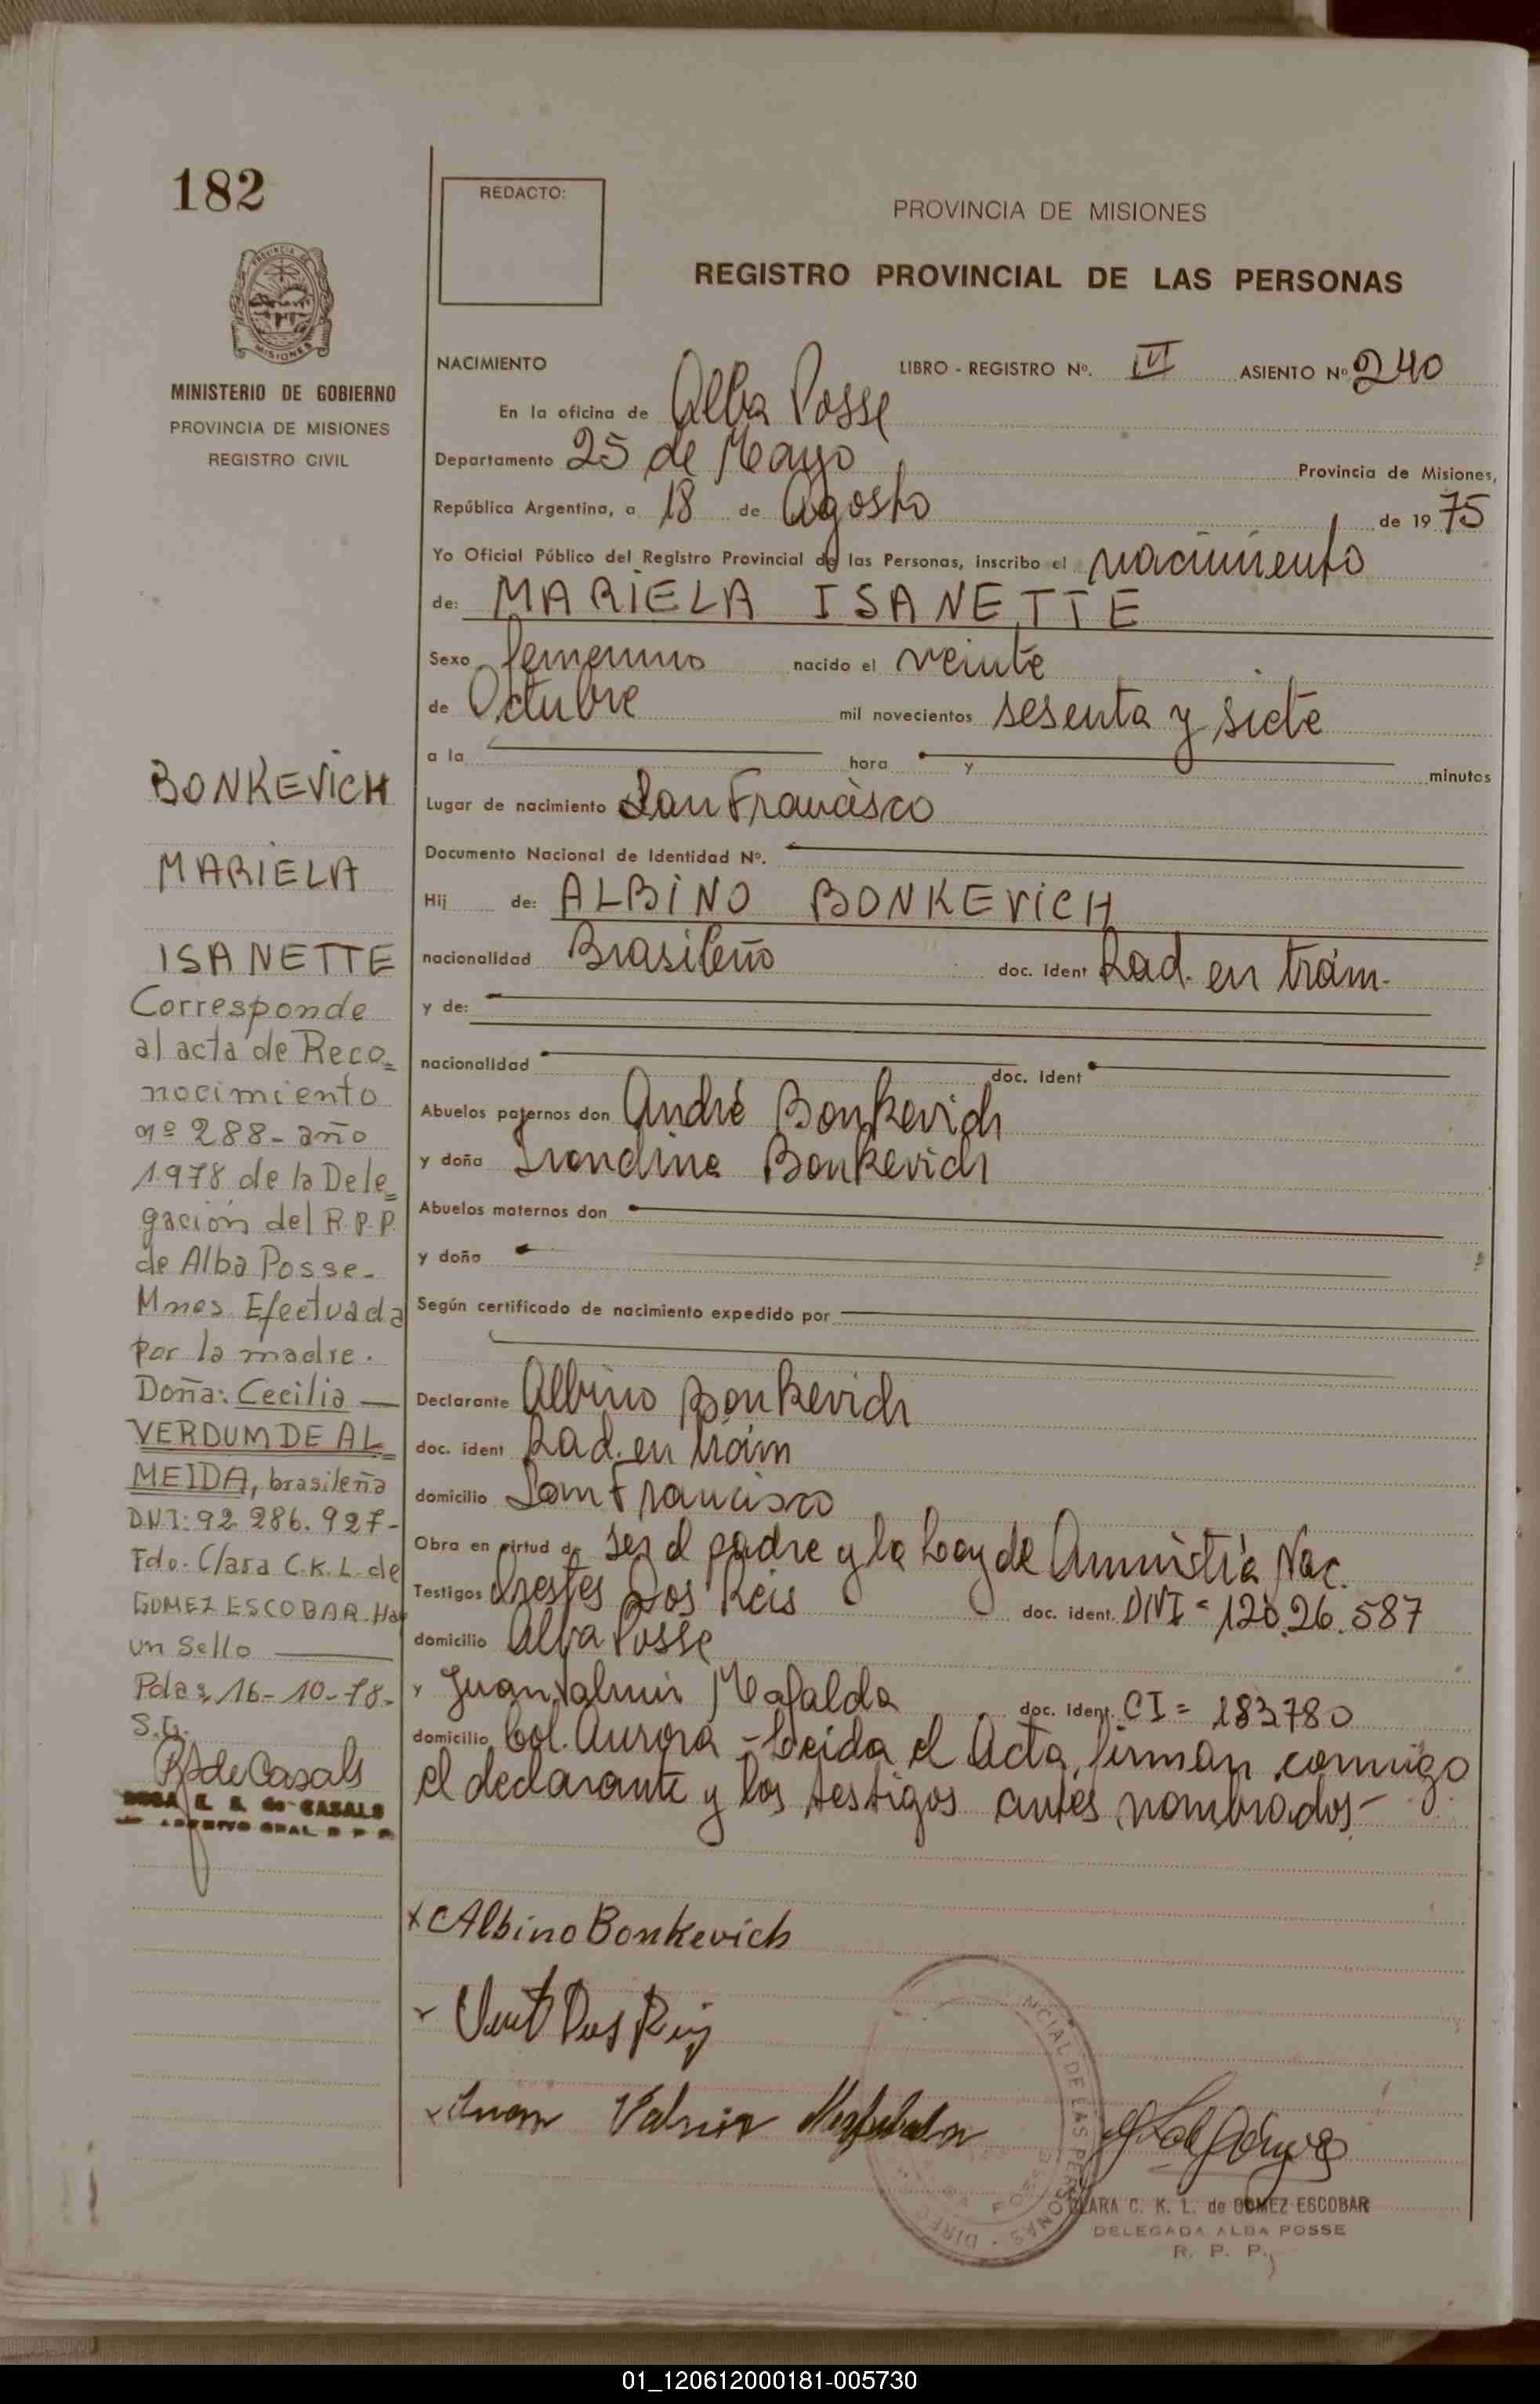 182
REDACTO:
PROVINCIA DE MISIONES
REGISTRO PROVINCIAL DE LAS PERSONAS
PROVINCIA DE
MISIONES
MINISTERIO DE GOBIERNO
PROVINCIA DE MISIONES
REGISTRO CIVIL
NACIMIENTO LIBRO - REGISTRO Nº. IVI ASIENTO Nº 240
En la oficina de Alba Posse
Departamento 25 de Mayo Provincia de Misiones,
República Argentina, a 18 de Agosto de 1975
Yo Oficial Público del Registro Provincial de las Personas, inscribo el nacimiento
de: MARIELA ISANETTE
Sexo femenino nacido el veinte
de Octubre mil novecientos sesenta y siete
a la hora y minutos
Lugar de nacimiento San Francisco
Documento Nacional de Identidad Nº.
Hij de: ALBINO BONKEVICH
nacionalidad Brasileño doc. Ident Rad. en trám.
y de:
nacionalidad doc. Ident
Abuelos paternos don André Bonkevich
y doña Bonkevich
Abuelos maternos don
y doña
Según certificado de nacimiento expedido por
Declarante Albino Bonkevich
doc. ident Rad. en trám
domicilio San Francisco
Obra en virtud de ser el padre y la Ley de Amnistía Nac.
Testigos Orestes Dos Reis doc. ident. DNI = 120.26.587
domicilio Alba Posse
y Juan Valmir Mafalda doc. Ident. CI = 183780
domicilio Col. Aurora - Leída el Acta, firman conmigo
el declarante y los testigos antes nombrados -
BONKEVICH
MARIELA
ISANETTE
Corresponde
al acta de Reco=
nocimiento
nº 288 - año
1.978 de la Dele=
gación del R.P.P.
de Alba Posse -
Mnes. Efectuada
por la madre.
Doña: Cecilia
VERDUM DE AL=
MEIDA, brasileña
D.N.I: 92.286.927-
Fdo. Clara C.K.L. de
GOMEZ ESCOBAR. Hay
un Sello
Pdas, 16-10-78-
S.G.
de Casals
de CASALS
x Albino Bonkevich
Dos Reis
x Juan Valmir Mafalda
CIAL DE LAS PERSONAS - DIREC
POSSE
CLARA C. K. L. de GOMEZ ESCOBAR
DELEGADA ALBA POSSE
R. P. P.
01_120612000181-005730